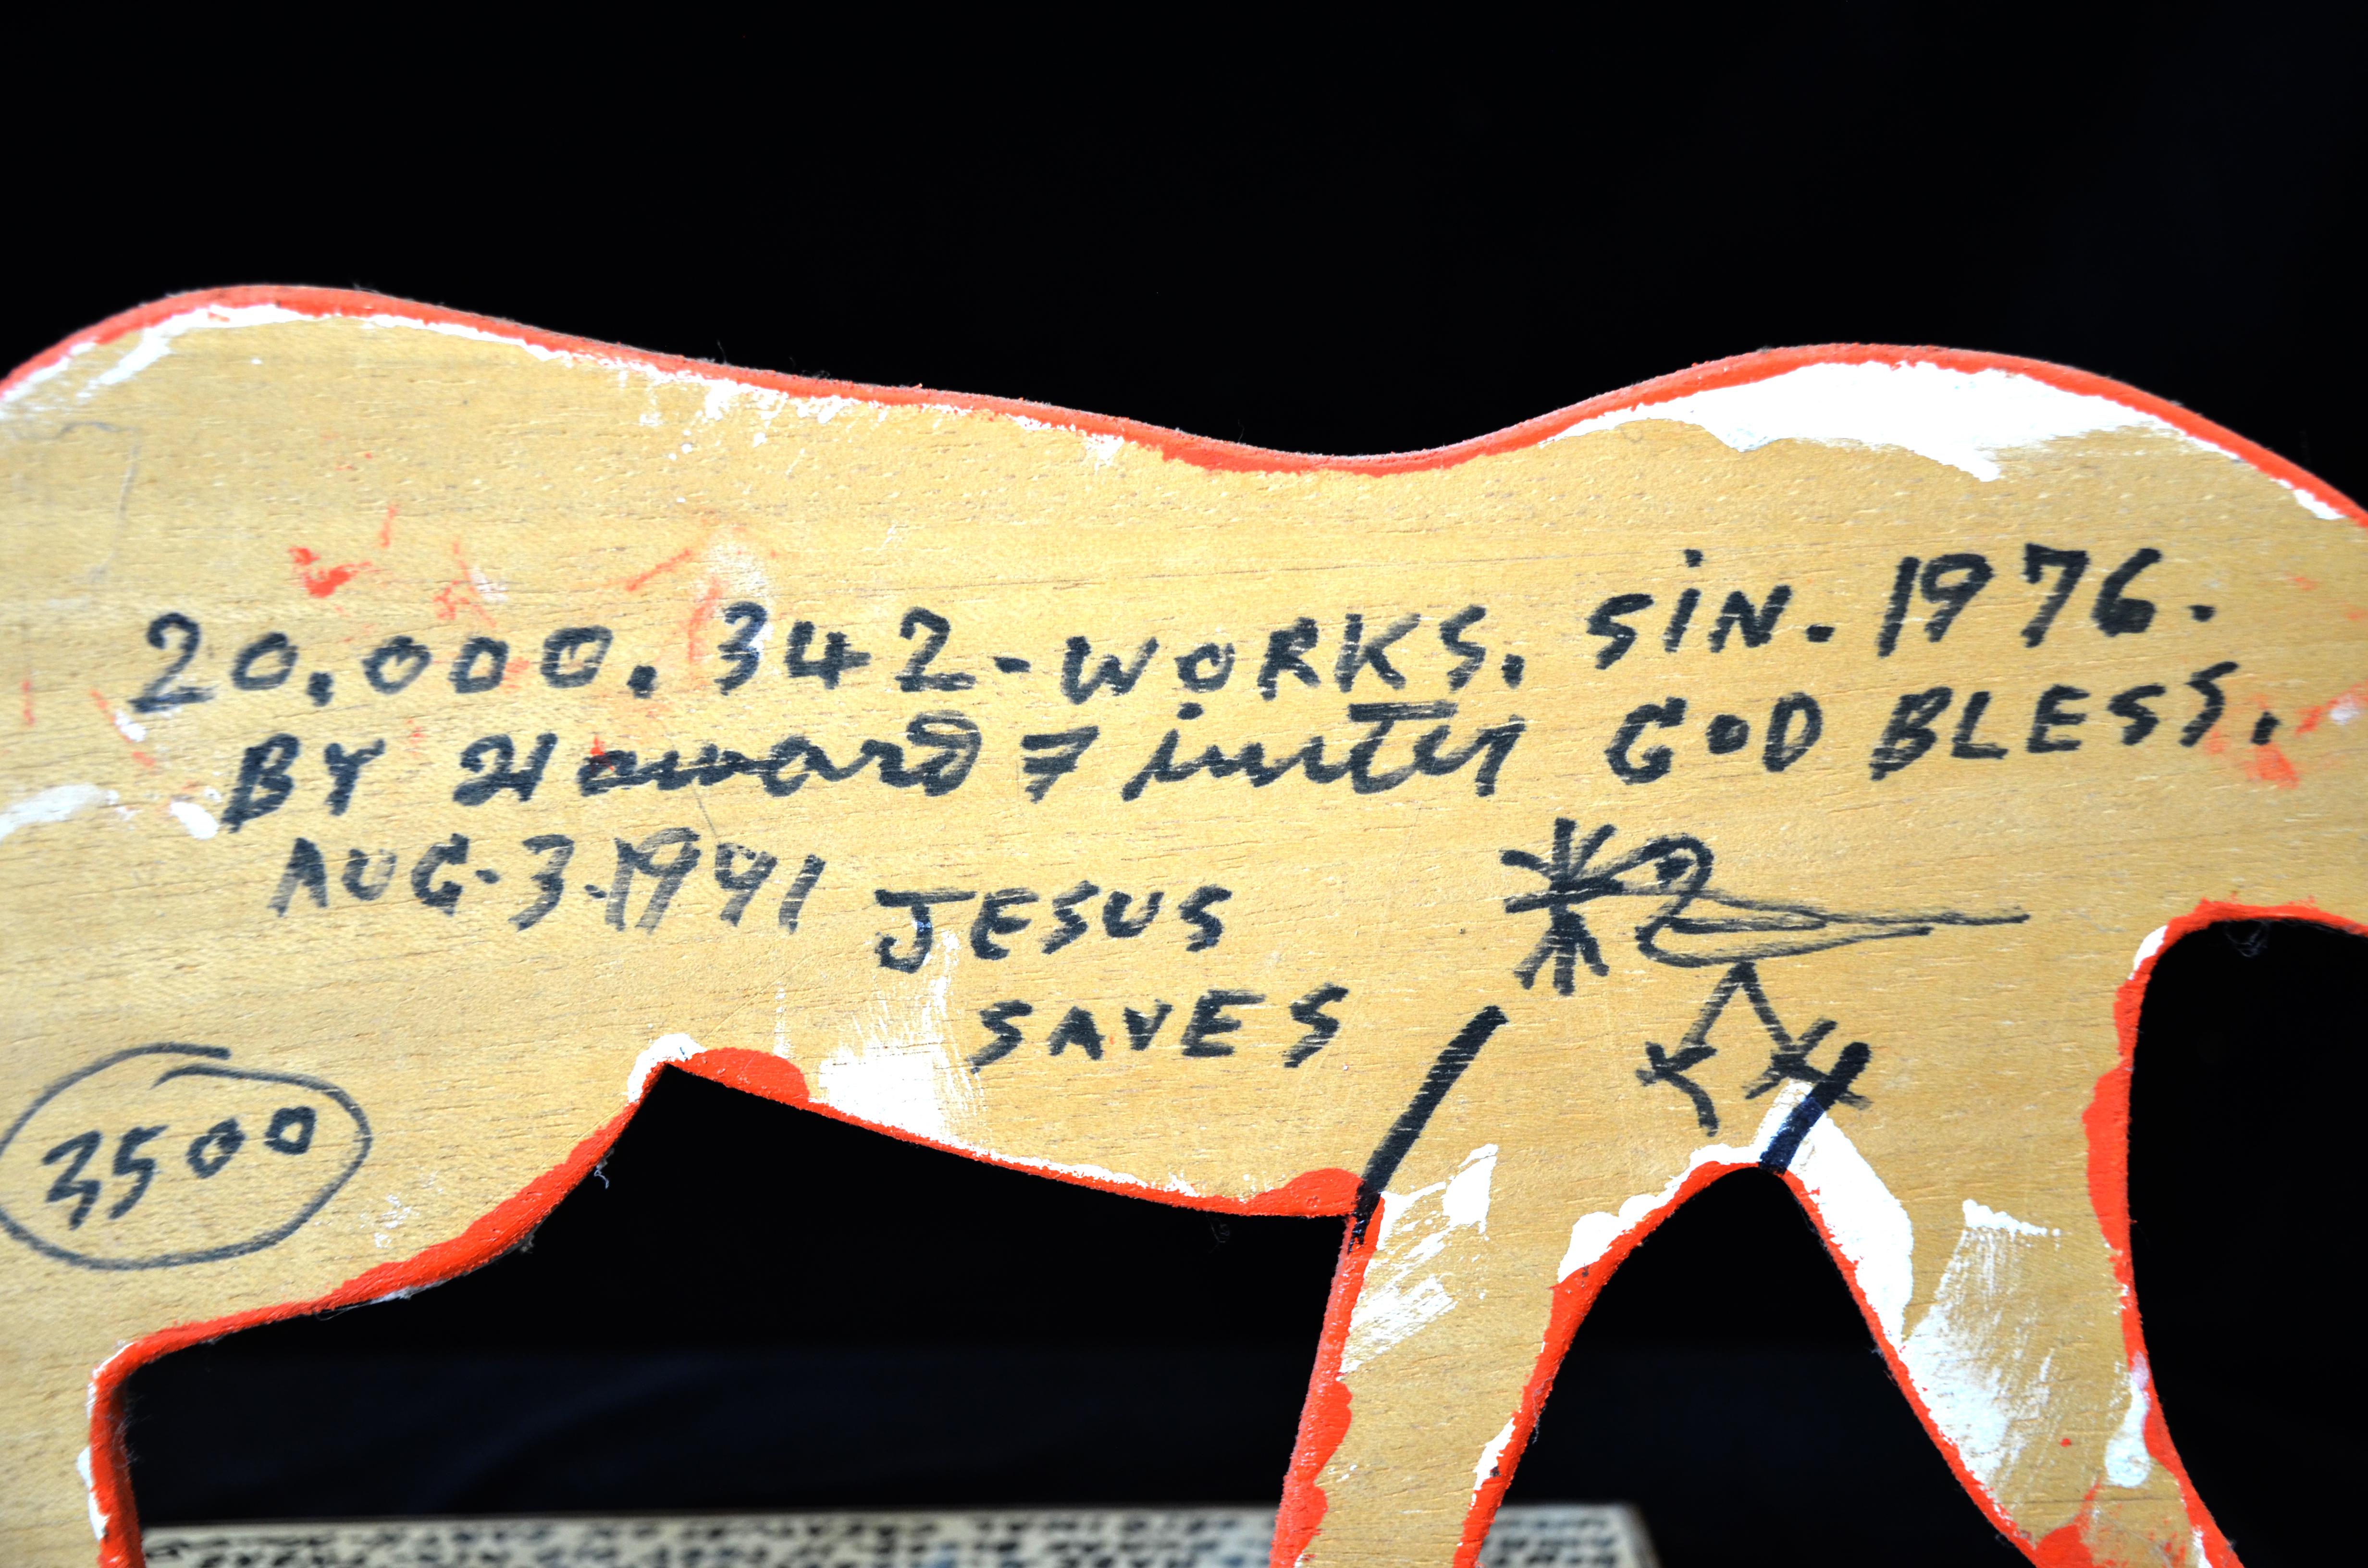 20,000. 342-WORKS. SiN. 1976.
BY Howard Finster GOD BLESS.
AUG-3-1991
JESUS
SAVES
3500